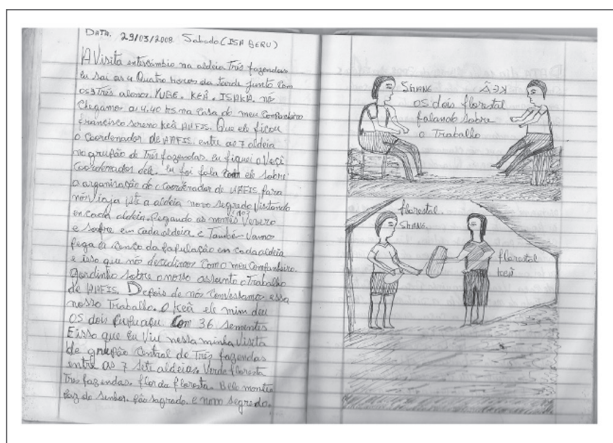 DATA. 29/03/2008 Sabado (ISA BERU)
A Visita intercambio na aldeia Três fazendas
eu sai as 4 Quatro horas da tarde junto com
os Três alonos. YUBE. KEÃ. ISAKA. nó
chegamo as 4:40 hs na casa do meu Companheiro
francisco sereno keã Que ele ficou
o Coordenador de AAFIS. entre as 7 aldeia
no grupão de Três fazendas. eu fiquei o Veçi
coordenador dele. eu foi fala com ele sobre
o organização do coordenador de AAFIS. para
nós viaja até a aldeia novo segredo Vistando
en cada aldeia. Pegando as nomes
e en cada aldeia. e Também Vamos
Pega o senço da População en cada aldeia
e isso que nós decidimos Como meu Companheiro.
sobre o nosso assunto e Trabalho
de AAFIS. Depois de nós essa
nosso Trabalho. O Keã ele mim deu
OS dois Com 36 sementes
E isso que Eu Viu nessa minha Visita
de grupão Central de Três fazendas
entre as 7 seti aldeias Verde floresta
Tres fazendas. flor da floresta. Belo monte
são sagrado e novo segredo.
Shane
KEÃ
OS dois florestal
falando sobre
o Traballo
florestal
Shane
florestal